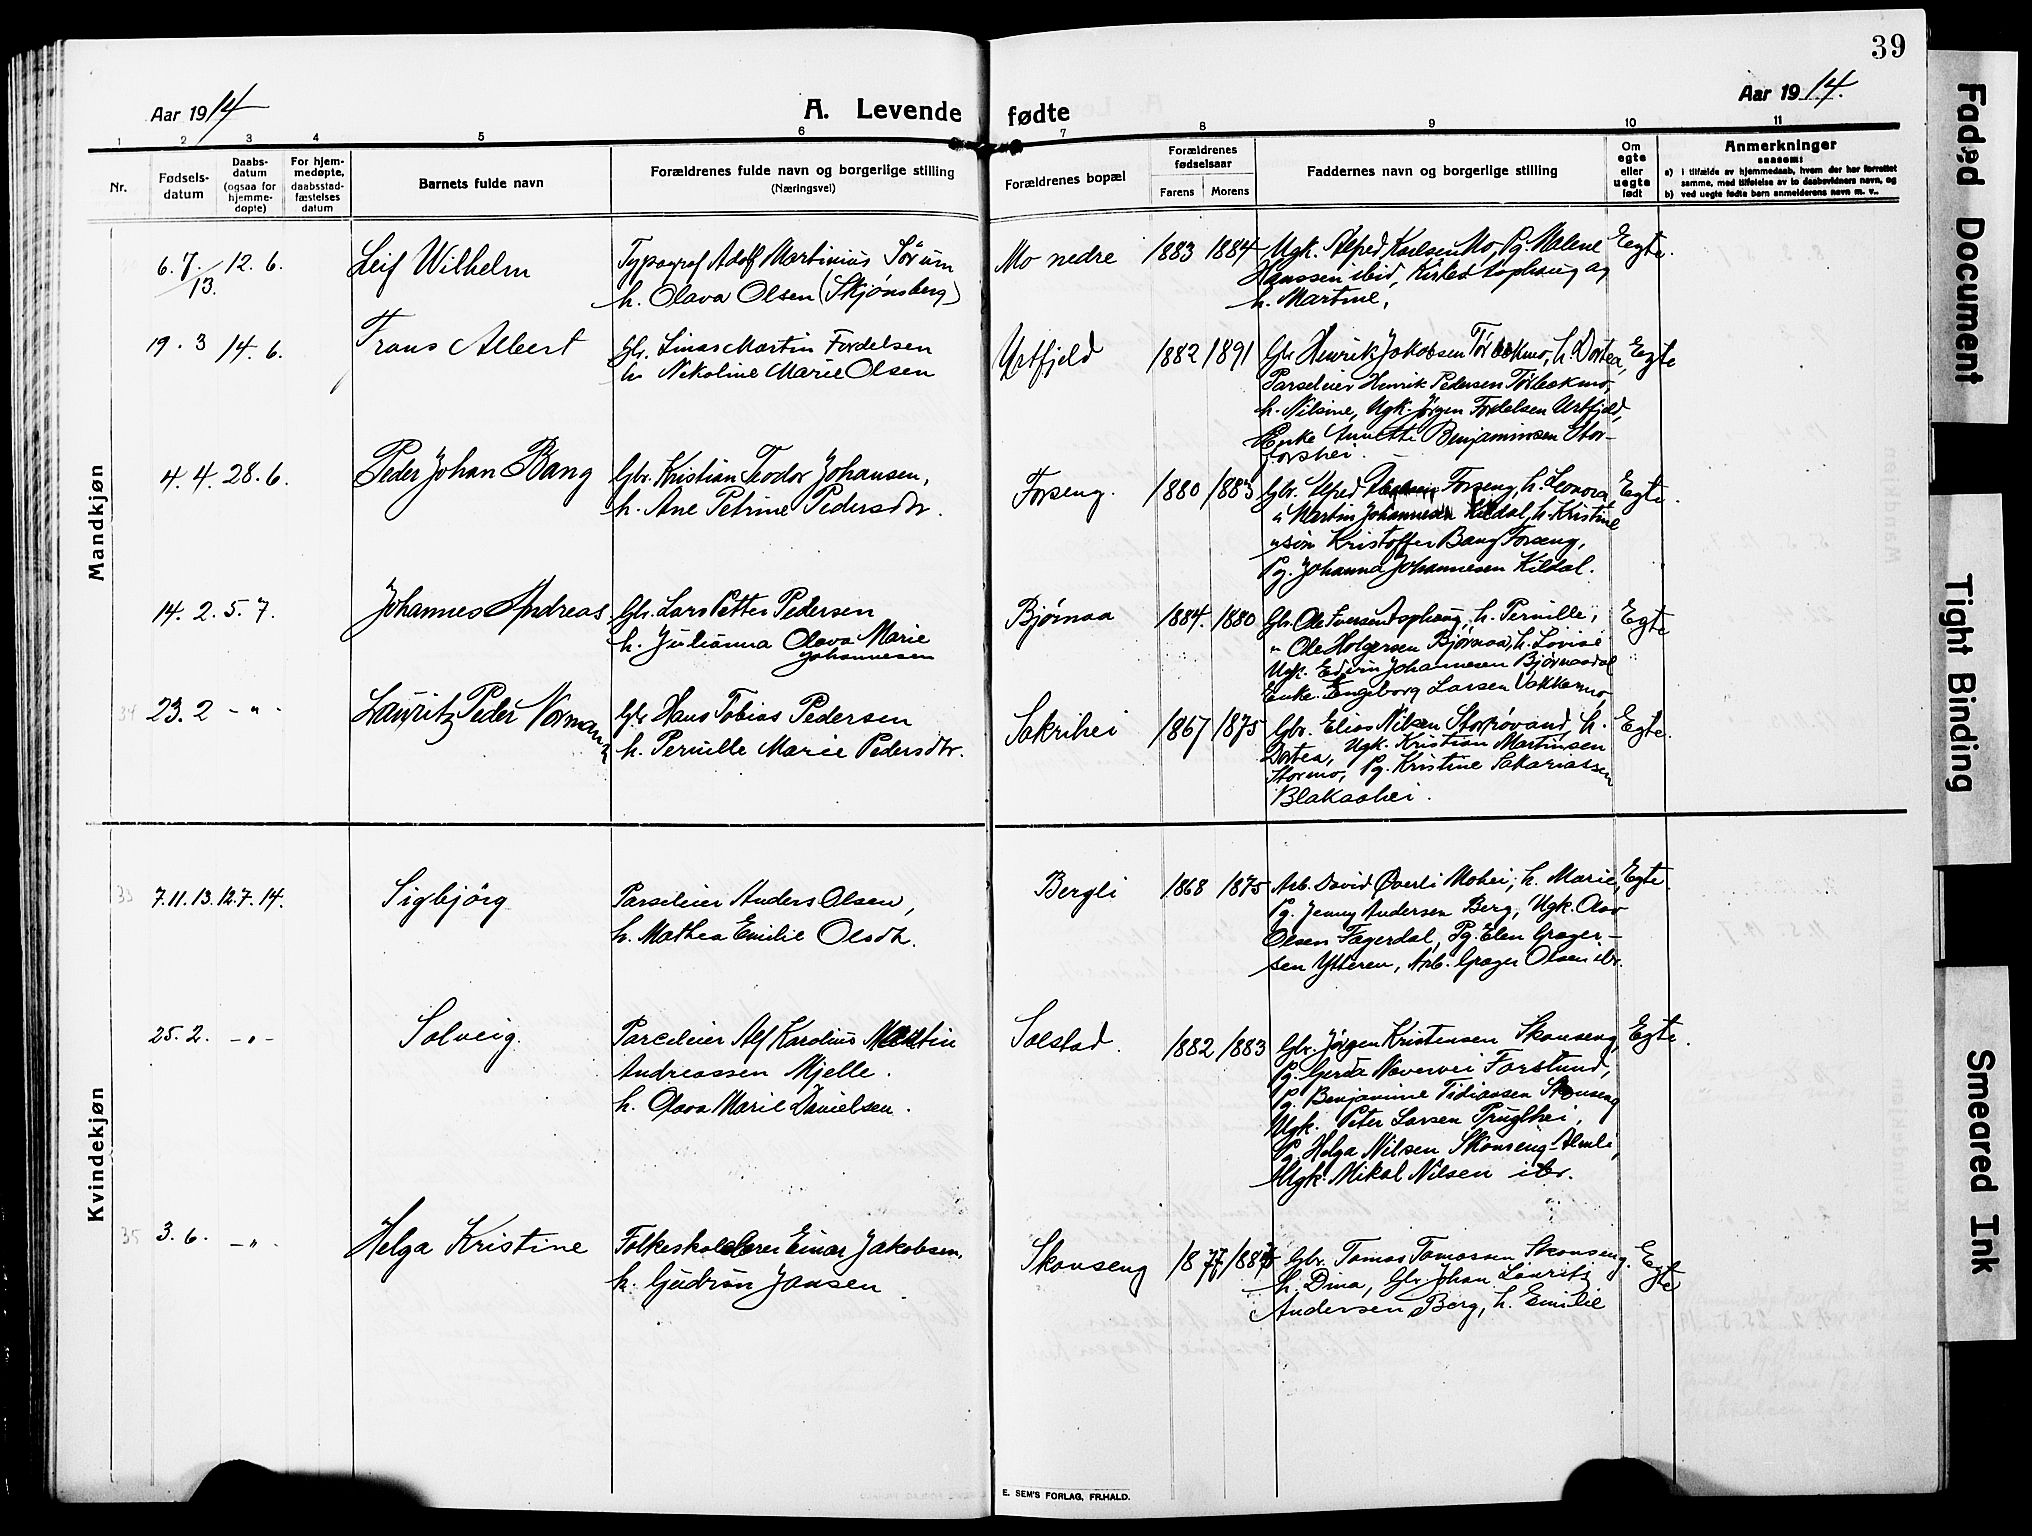 39
Aar 1914
A. Levende fødte
Aar 1914.
1 2 3 4 5 6 7 8 9 10 11
Nr.
Fødsels-
datum
Daabs-
datum
(ogsaa for
hjemme-
døpte)
For hjem-
medøpte,
daabsstad-
fæstelses
datum
Barnets fulde navn
Forældrenes fulde navn og borgerlige stilling
(Næringsvei)
Forældrenes bopæl
Forældrenes
fødselsaar
Farens Morens
Faddernes navn og borgerlige stilling
Om
egte
eller
uegte
født
Anmerkninger
saasom:
a) i tilfælde av hjemmedaab, hvem der har forrettet
samme, med tilføielse av to daabsvidners navn, og
b) ved uegte fødte børn anmelderens navn m. v..
Mandkjøn
6.7./13. 12.6.
Leif Wilhelm
Typograf Adolf Martinius Sørum
h. Olava Olsen (Skjønsberg)
Mo nedre
1883 1884
Ugk. Alfred Karlsen Mo, Pg. Malene
Hanssen ibid, Asphaug og
h. Martine,
Egte.
19.3 14.6.
Frans Albert
Gbr. Linas Martin Fordelsen
h. Nikoline Marie Olsen
Urtfjeld
1882 1891
Gbr Henrik Jakobsen Tørbækmo, h. Dortea,
Parseleier Henrik Pedersen Tørbækmo,
h. Nilsine, Ugk. Jørgen Fordelsen Urtfjeld,
Enke Anette Benjaminsen Stor-
forshei.
Egte
4.4. 28.6.
Peder Johan Bang
Gbr. Kristian Teodor Johansen,
h. Ane Petrine Pedersdtr.
Forseng.
1880 1883
Gbr. Alfred Forseng, h. Leonora,
" Martin Johannesen Kildal, h. Kristine
Kristoffer Bang Forseng,
Pg. Johanna Johannesen Kildal.
Egte.
14.2. 5.7.
Johannes Andreas
Gbr. Lars Petter Pedersen
h. Julianna Olava Marie
Johannesen
Bjørnaa
1884. 1880
Gbr. Ole Iversen Asphaug, h. Pernille,
" Ole Holgersen Bjørnaa, h. Lovise
Ugk. Edvin Johannesen Bjørnaadal
Enke. Ingeborg Larsen Vakkermo
Egte
34 23.2 - " -
Lauritz Peder Norman
Gbr Hans Tobias Pedersen
h. Pernille Marie Pedersdtr.
Sakrihei
1867 1875
Gbr. Elias Nilsen , h.
Dortea, Ugk. Kristian Martinsen
Stormo, Pg. Kristine Sakariassen
Blakaahei.
Egte.
Kvindekjøn
33 7.11.13. 12.7.14.
Sigbjörg
Parseleier Anders Olsen,
h. Mathea Emilie Olsdtr.
Bergli
1868 1875
Arb. David Øverli Mohei, h. Marie,
Pg. Jenny Andersen Berg, Ugk. Olav
Olsen Fagerdal, Pg. Elen Grøger-
sen Ytteren, Arb. Grøger Olsen ibr.
Egte.
25.2. - " -
Solveig.
Parceleier Alf Karolius Martin
Andreassen Mjelle.
h. Olava Marie Danielsen.
Solstad.
1882 1883
Gbr. Jørgen Kristensen Skonseng,
Pg. Gerda Nævervei Forslund,
Pg. Benjamine Tidiansen Skonseng
Ugk. Peter Larsen
Pg. Helga Nilsen Skonseng-Almli,
Ugk. Mikal Nilsen ibr.
Egte.
35 3.6. - " -
Helga Kristine
Folkeskolelærer Einar Jakobsen,
h. Gudrun Jansen.
Skonseng
1877
Gbr. Tomas Tomassen Skonseng.
h. Dina, Gbr Johan Lauritz
Andersen Berg, h. Emilie
Egte
E. SEM'S FORLAG, FR.HALD.
Faded Document
Tight Binding
Smeared Ink